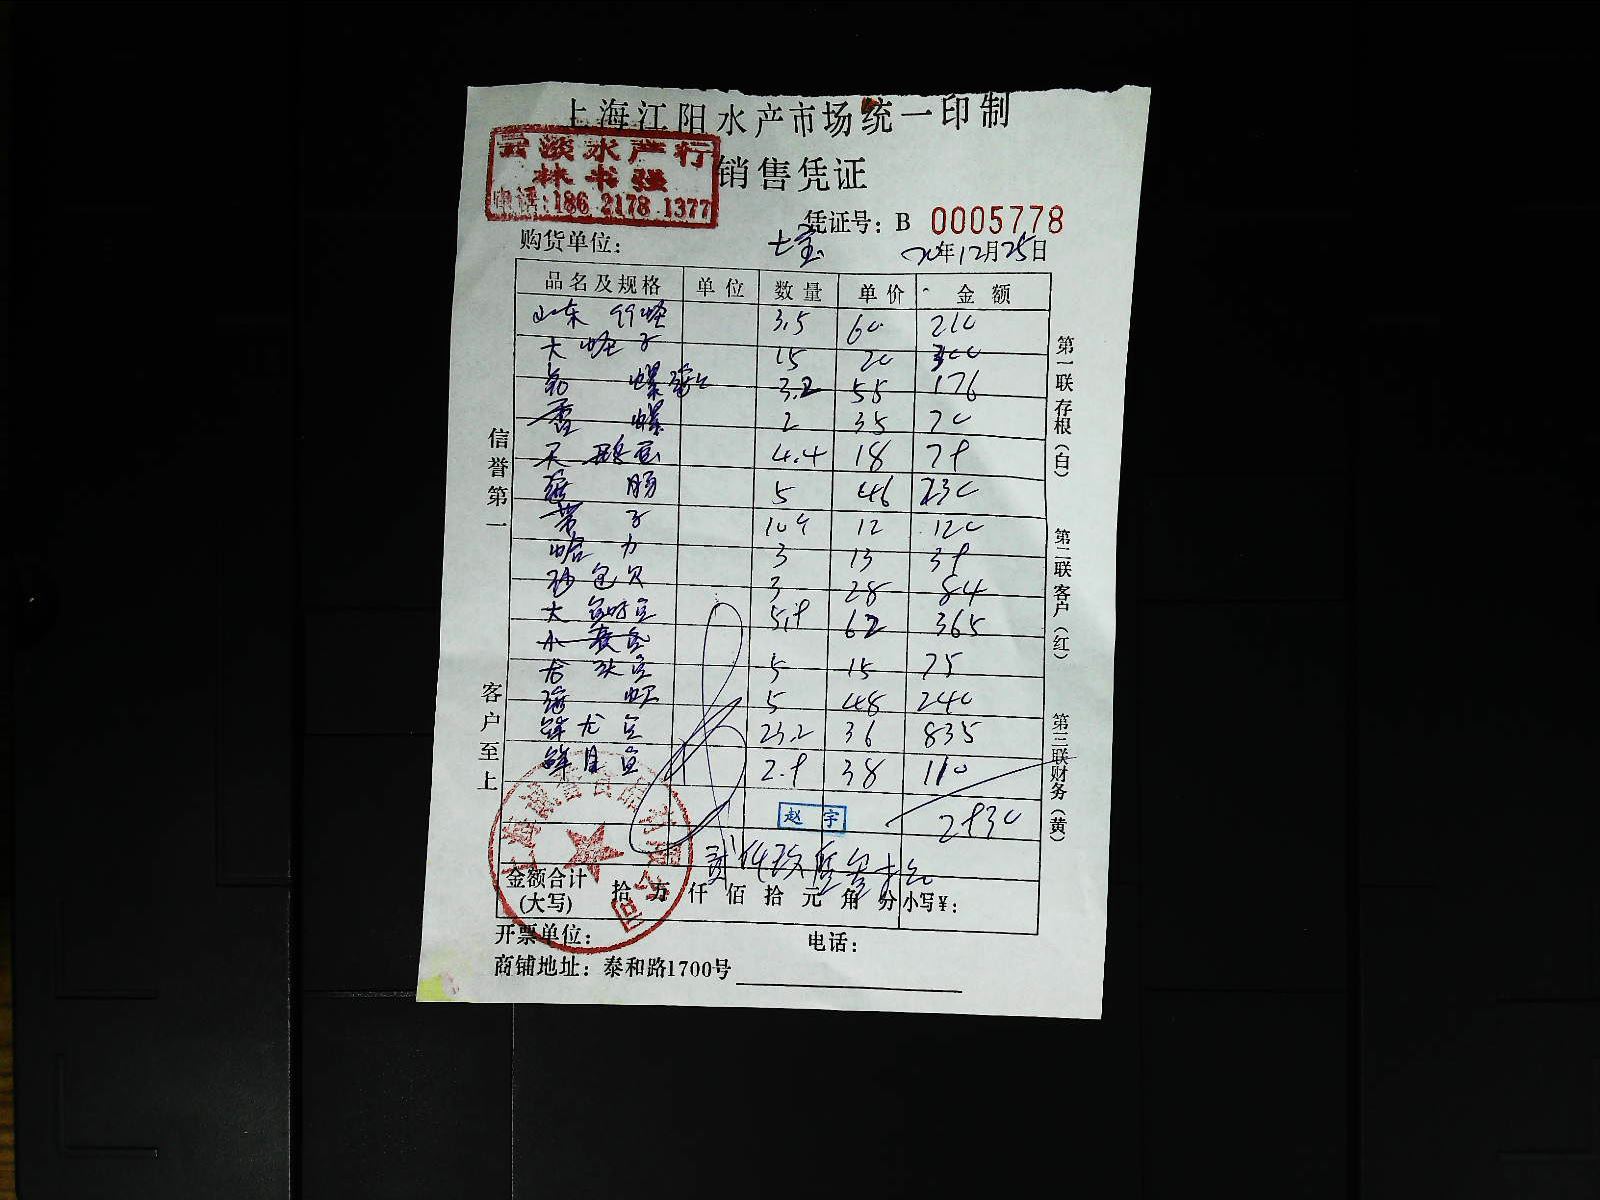 上海江阳水产市场统一印制
云淡水产行
林书强
电话:186 2178 1377
销售凭证
凭证号: B 0005778
购货单位: 七宝 20年12月25日
品名及规格 单位 数量 单价 金额
山东 竹蛏 3.5 60 210
大蛏子 15 20 300
螺 3.2 55 176
香螺 2 35 70
天鹅蛋 4.4 18 79
海肠 5 46 230
子 10个 12 120
哈力 3 13 39
沙包贝 3 28 84
大 5.9 62 365
小
5 15 75
海 5 48 240
鲜龙 23.2 36 835
鲜 2.9 38 110
赵宇 2930
贰仟玖佰叁拾元
金额合计(大写) 拾 万 仟 佰 拾 元 角 分 小写¥:
开票单位: 电话:
商铺地址: 泰和路1700号
信誉第一
客户至上
第一联 存根(白)
第二联 客户(红)
第三联 财务(黄)